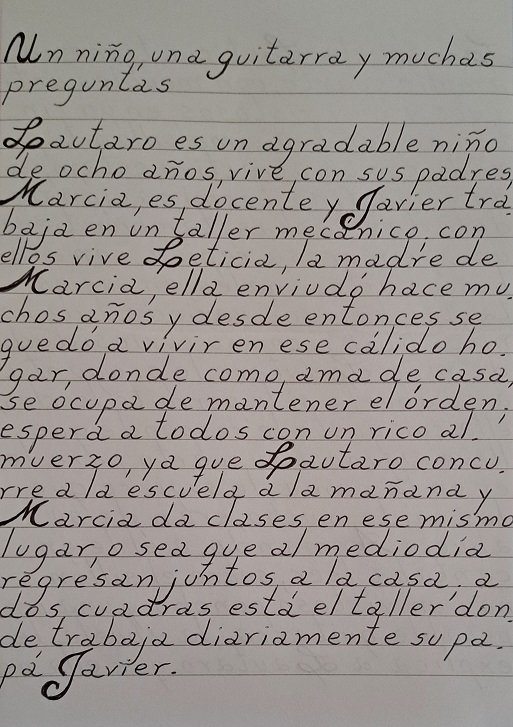 Un niño, una guitarra y muchas
preguntas
Lautaro es un agradable niño
de ocho años, vive con sus padres,
Marcia, es docente y Javier tra.
baja en un taller mecánico, con
ellos vive Leticia, la madre de
Marcia, ella enviudó hace mu.
chos años y desde entonces se
quedó a vivir en ese cálido ho.
gar, donde como ama de casa,
se ocupa de mantener el órden,
espera a todos con un rico al.
muerzo, ya que Lautaro concu.
rre a la escuela a la mañana y
Marcia da clases en ese mismo
lugar, o sea que al mediodía
regresan juntos a la casa. a
dos cuadras está el taller don.
de trabaja diariamente su pa.
pá Javier.